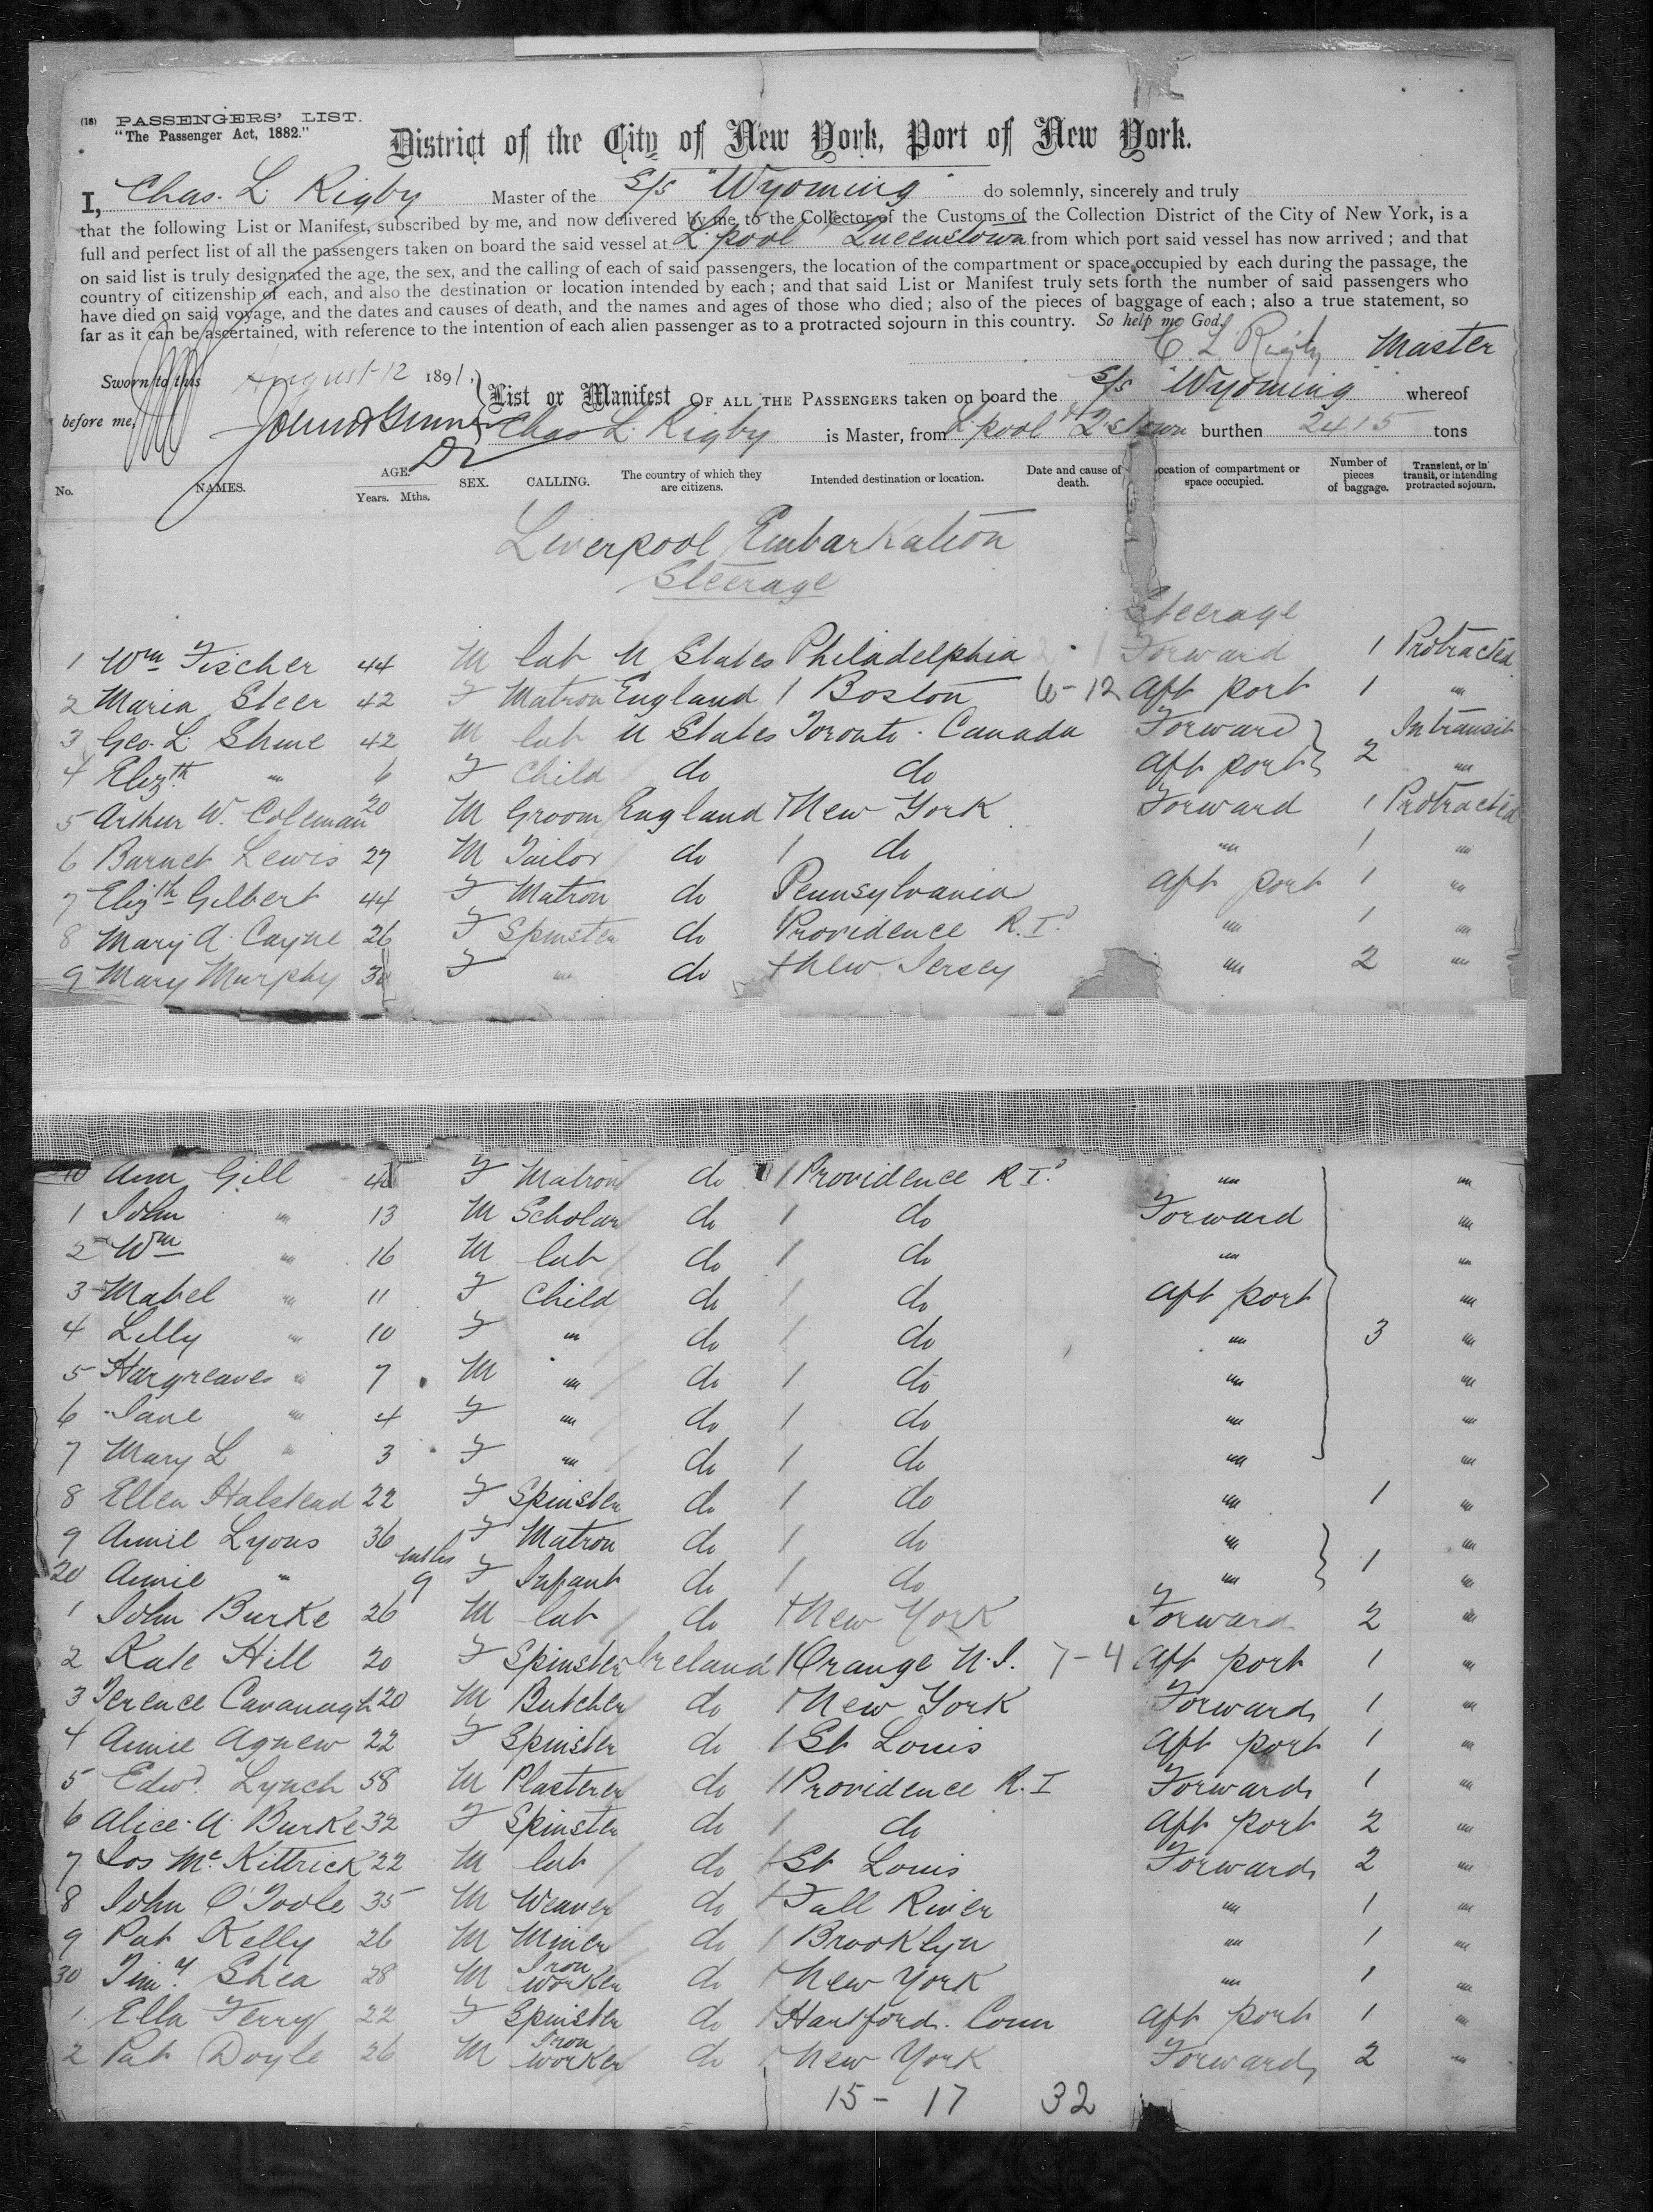 (18) PASSENGERS' LIST.
"The Passenger Act, 1882."
District of the City of New York, Port of New York.
I, Chas. L. Rigby Master of the S/S "Wyoming" do solemnly, sincerely and truly
that the following List or Manifest, subscribed by me, and now delivered by me to the Collector of the Customs of the Collection District of the City of New York, is a
full and perfect list of all the passengers taken on board the said vessel at L'pool & Queenstown from which port said vessel has now arrived; and that
on said list is truly designated the age, the sex, and the calling of each of said passengers, the location of the compartment or space occupied by each during the passage, the
country of citizenship of each, and also the destination or location intended by each; and that said List or Manifest truly sets forth the number of said passengers who
have died on said voyage, and the dates and causes of death, and the names and ages of those who died; also of the pieces of baggage of each; also a true statement, so
far as it can be ascertained, with reference to the intention of each alien passenger as to a protracted sojourn in this country. So help me God.
C L Rigby Master
Sworn to this August 12 1891.
before me,
List or Manifest OF ALL THE PASSENGERS taken on board the S/S "Wyoming" whereof
Chas L. Rigby is Master, from L'pool & Q'stown burthen 2415 tons
No. NAMES. AGE. Years. Mths. SEX. CALLING. The country of which they are citizens. Intended destination or location. Date and cause of death. ocation of compartment or space occupied. Number of pieces of baggage. Transient, or in transit, or intending protracted sojourn.
Liverpool Embarkation
Steerage
Steerage
1 Wm Fischer 44 M lab U States Philadelphia Forward 1 Protracted
2 Maria Steer 42 F Matron England 1 Boston 6-12 Aft port 1 "
3 Geo. L. 42 M lab U States Toronto. Canada Forward } In transit
4 Elizth " 6 F Child do do Aft port } 2 "
5 Arthur W. Coleman 20 M Groom England 1 New York Forward 1 Protracted
6 Barnet Lewis 27 M Tailor do 1 do " 1 "
7 Elizth Gilbert 44 F Matron do Pennsylvania Aft port 1 "
8 Mary A. Cayne 26 F Spinster do 1 Providence R.I. " 1 "
9 Mary Murphy F " do 1 New Jersey " 2 "
10 Ann Gill F Matron do 1 Providence R.I. " "
1 John " 13 M Scholar do 1 do Forward "
2 Wm " 16 M lab do 1 do " "
3 Mabel " 11 F Child do 1 do Aft port "
4 Lilly " 10 F " do 1 do " 3 "
5 Hargreaves " 7 M " do 1 do " "
6 Jane " 4 F " do 1 do " "
7 Mary L " 3 F " do 1 do " "
8 Ellen Halstead 22 F Spinster do 1 do " 1 "
9 Annie Lyons 36 F Matron do 1 do " "
20 Annie " mths 9 F Infant do 1 do " } 1 "
1 John Burke 26 M lab do 1 New York Forward 2 "
2 Kate Hill 20 F Spinster Ireland 1 Orange N.J. 7-4 Aft port 1 "
3 Terence Cavanagh 20 M Butcher do 1 New York Forward 1 "
4 Annie Agnew 22 F Spinster do 1 St Louis Aft port 1 "
5 Edwd. Lynch 58 M Plasterer do 1 Providence R.I Forward 1 "
6 Alice A. Burke 32 F Spinster do 1 do Aft port 2 "
7 Jos McKittrick 22 M lab do 1 St Louis Forward 2 "
8 John O'Toole 35 M Weaver do 1 Fall River " 1 "
9 Pat Kelly 26 M Miner do 1 Brooklyn " 1 "
30 Timy. Shea 28 M Iron worker do 1 New York " 1 "
1 Ella Ferry 22 F Spinster do 1 Hartford. Conn Aft port 1 "
2 Pat Doyle 26 M Iron worker do 1 New York Forward 2 "
15 - 17 32